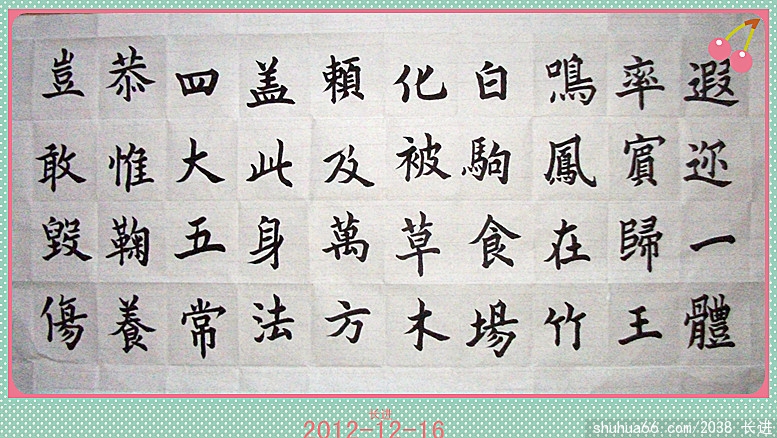 遐迩一體
率賓歸王
鳴鳳在竹
白駒食場
化被草木
賴及萬方
盖此身法
四大五常
恭惟鞠養
豈敢毀傷
长进
2012-12-16
shuhua66.com/2038 长进